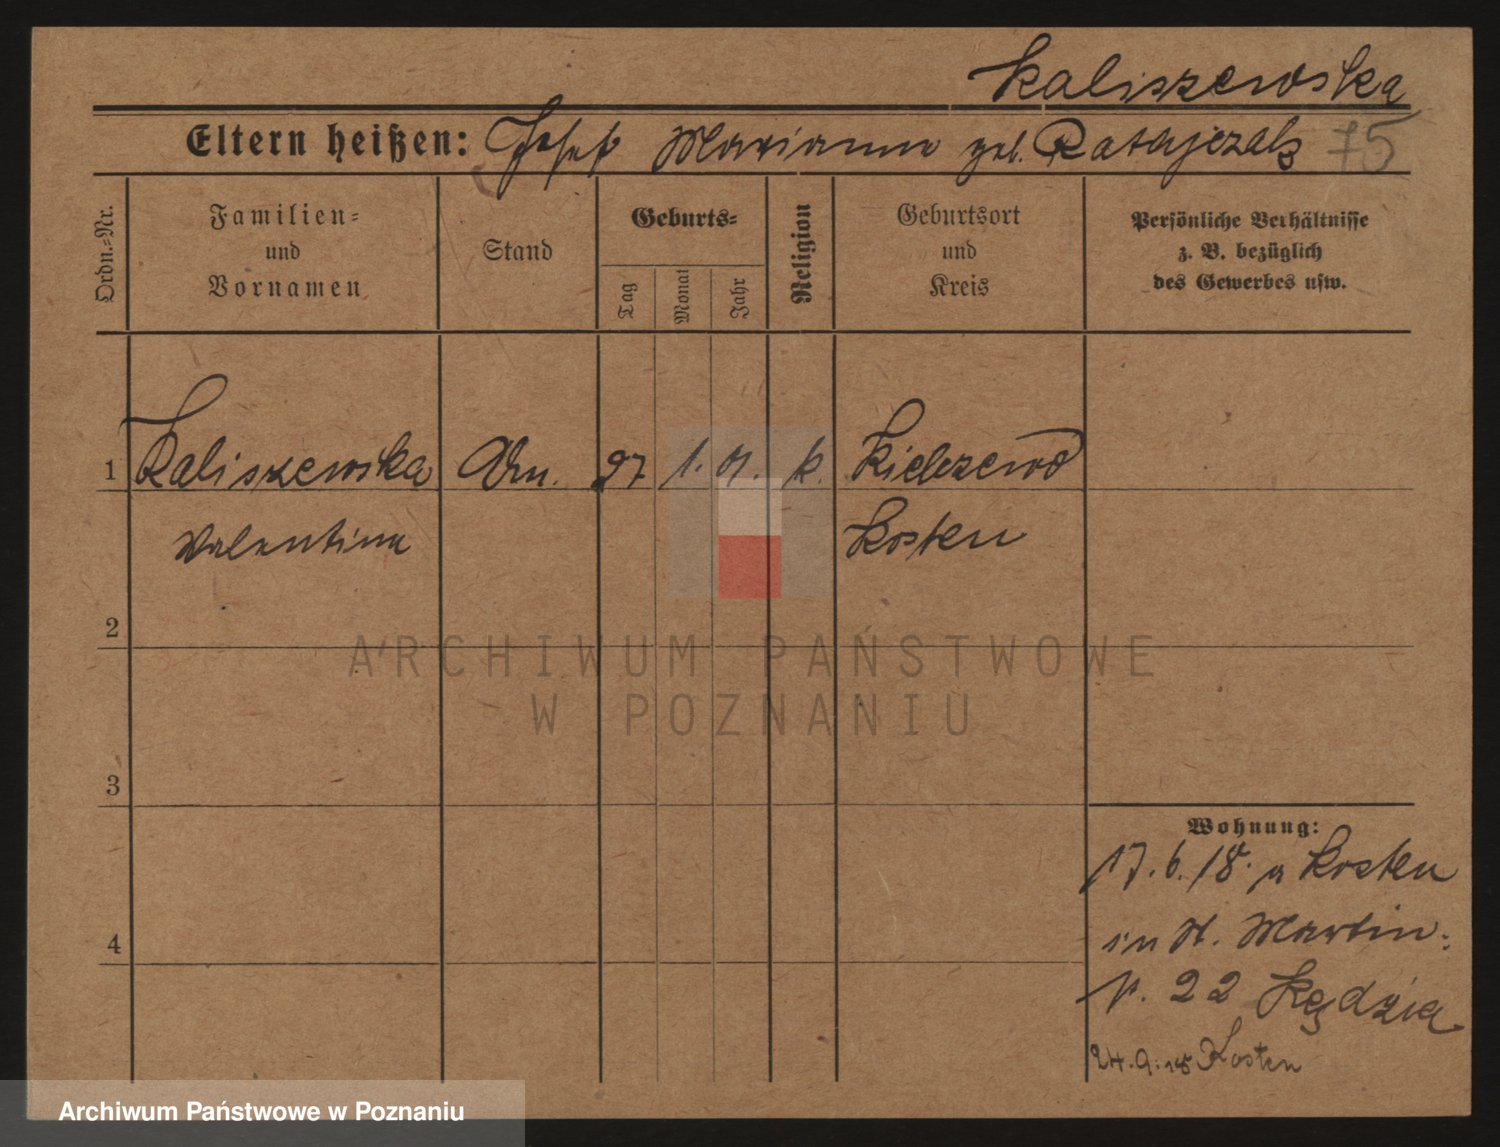 Kaliszewska
Eltern heißen: Josef Marianna geb. Ratajczak 75
Ordn.=Nr.
Familien=
und
Vornamen
Stand
Geburts=
Tag
Monat
Jahr
Religion
Geburtsort
und
Kreis
Persönliche Verhältnisse
z. B. bezüglich
des Gewerbes usw.
1 Kaliszewska 27 1. k. Kielczewo
Valentina Kosten
2
3
4
Wohnung:
17.6.18. Kosten
in St. Martin-
22 Kędzia
24.9.18 Kosten
ARCHIWUM PAŃSTWOWE
W POZNANIU
Archiwum Państwowe w Poznaniu